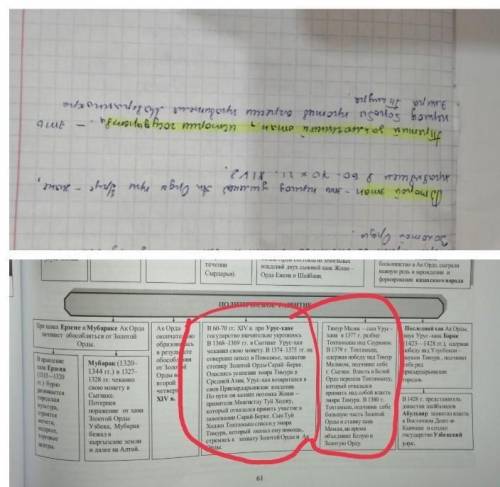 Золотой Орды.
Второй этап – это период усиления Ак Орды при Урус – хане,
в 60-70 гг. XIV в.
Третий заключительный этап истории государства. – это
период борьбы против
Эмира Тимура.
течении
Сырдарьи).
владений двух сыновей хана Жоши –
Орда Ежена и Шайбани.
население в Ак Орде, сыграли
важную роль в зарождении и
формировании казахского народа
ПОЛИТИЧЕСКОЕ РАЗВИТИЕ
При ханах Ерзене и Мубараке Ак Орда
начинает обособляться от Золотой
Орды.
В правление
хана Ерзена
(1315–1320
гг.)
развивается
городская
культура,
строятся
мечети,
медресе,
торговые
центры.
Мубарак (1320–
1344 гг.) в 1327–
1328 гг. чеканил
свою монету в
Сыгнаке.
Потерпев
поражение от хана
Золотой Орды
Узбека, Мубарак
бежал в
кыргызские земли
и далее на Алтай.
Ак Орда
окончательно
образовалась
в результате
обособления
от Золотой
Орды во
второй
четверти
XIV в.
В 60-70 гг. XIV в. при Урус-хане
государство значительно укрепилось.
В 1368–1369 гг. в Сыгнаке Урус-хан
чеканил свою монету. В 1374–1375 гг. он
совершил поход в Поволжье, захватив
столицу Золотой Орды Сарай-Берке.
Опасаясь усиления эмира Тимура в
Средней Азии, Урус-хан возвратился в
свои Присырдарьинские владения.
По пути он казнил потомка Жоши –
правителя Мангистау Туй Ходжу,
который отказался принять участие в
завоевании Сарай-Берке. Сын Туй
Ходжи Тохтамыш бежал к эмиру
Тимура, который оказал ему помощь,
стремясь к захвату Золотой Орды и Ак
Орды.
Тимур Малик – сын Урус
хана в 1377 г. разбил
Тохтамыша под Саураном.
В 1379 г. Тохтамыш,
одержав победу над Тимур
Маликом, подчинил себе
г. Сыгнак. Власть в Белой
Орде перешла Тохтамышу,
который отказался
признать над собой власть
эмира Тимура. В 1380 г.
Тохтамыш, подчинив себе
большую часть Золотой
Орды и ставку хана
Мамая, на время
объединил Белую и
Золотую Орду.
Последний хан Ак Орды,
внук Урус-хана Барак
(1423–1428 гг.), одержав
победу над Улугбеком –
внуком Тимура, подчинил
себе ряд
присырдарьинских
городов.
В 1428 г. представитель
династии шайбанидов
Абулхаир захватил власть
в Восточном Дешт-и-
Кыпчаке и создал
государство Узбекский
улус.
61